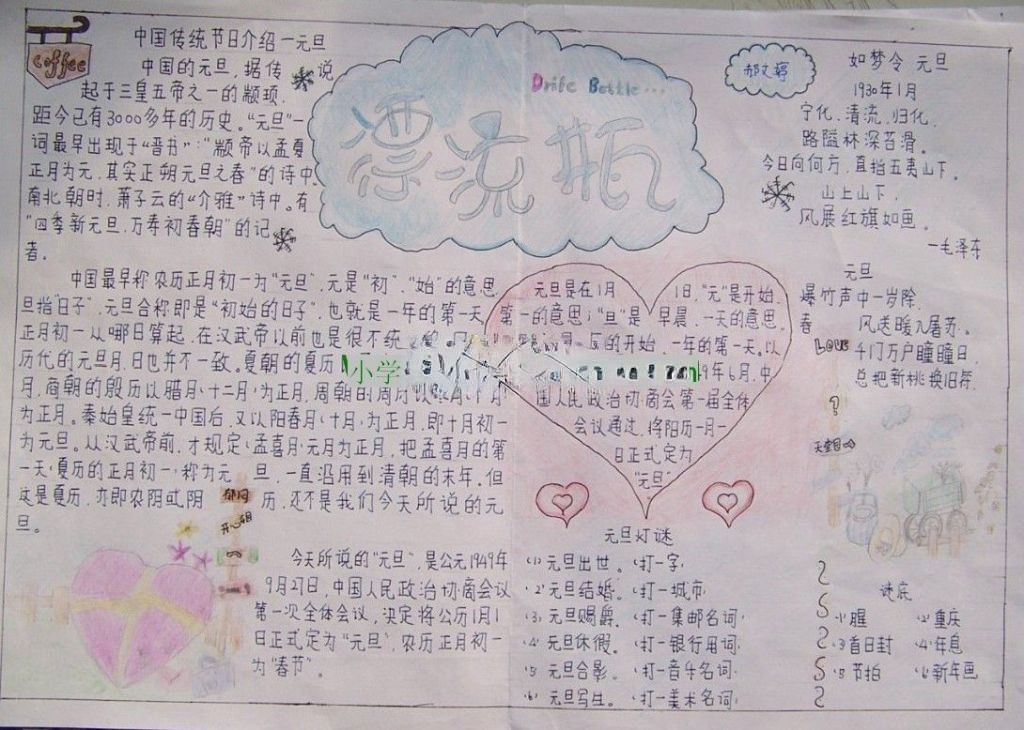 coffee
中国传统节日介绍—元旦
中国的元旦，据传说
起于三皇五帝之一的颛顼，
距今已有3000多年的历史。“元旦”一
词最早出现于“晋书”：“颛帝以孟夏
正月为元，其实正朔元旦之春”的诗中。
南北朝时，萧子云的“介雅”诗中。有
“四季新元旦，万寿初春朝”的记
者。
中国最早称农历正月初一为“元旦”，元是“初”、“始”的意思，
旦指“日子”，元旦合称即是“初始的日子”，也就是一年的第一天，
正月初一从哪日算起，在汉武帝以前也是很不统
历代的元旦月，日也并不一致。夏朝的夏历
月，商朝的殷历以腊月（十二月）为正月，周朝的周历以
为正月。秦始皇统一中国后，又以阳春月（十月）为正月，即十月初一
为元旦。从汉武帝前，才规定（孟喜月）元月为正月，把孟喜月的第
一天（夏历的正月初一）称为元旦，一直沿用到清朝的末年。但
这是夏历，亦即农阴或阴历，还不是我们今天所说的元
旦。
开心组
今天所说的“元旦”，是公元1949年
9月27日，中国人民政治协商会议
第一次全体会议，决定将公历1月1
日正式定为“元旦”，农历正月初一
为“春节”。
漂流瓶
元旦是在1月1日，“元”是开始，
第一的意思；“旦”是早晨，一天的意思。
的开始，一年的第一天。以
49年6月，中
国人民政治协商会第一届全体
会议通过，将阳历一月一
日正式定为
“元旦”
小学
元旦灯谜
（1）元旦出世。（打一字）
（2）元旦结婚。（打一城市）
（3）元旦赐爵。（打一集邮名词）
（4）元旦休假。（打一银行用词）
（5）元旦合影。（打一音乐名词）
（6）元旦写生。（打一美术名词）
如梦令 元旦
1930年1月
宁化、清流、归化，
路隘林深苔滑。
今日向何方，直指五夷山下。
山上山下，
风展红旗如画。
—毛泽东
元旦
爆竹声中一岁除，
春风送暖九屠苏。
千门万户瞳瞳日，
总把新桃换旧符。
Love
谜底
（1）腥 （2）重庆
（3）首日封 （4）年息
（5）节拍 （6）新年画